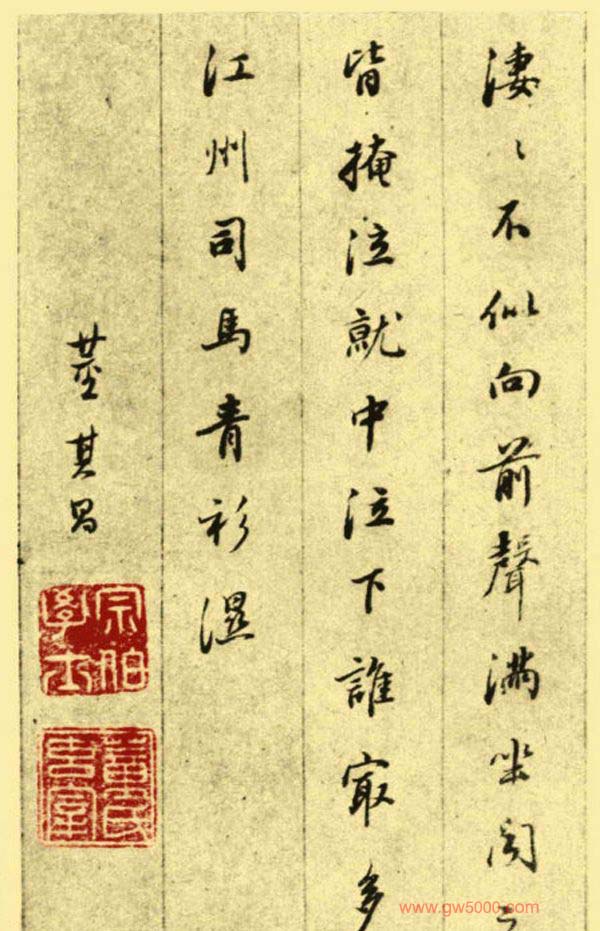 淒〻不似向前聲滿坐聞之
皆掩泣就中泣下誰㝡多
江州司馬青衫濕
董其昌
宗伯學士
董氏玄宰
www.gw5000.com